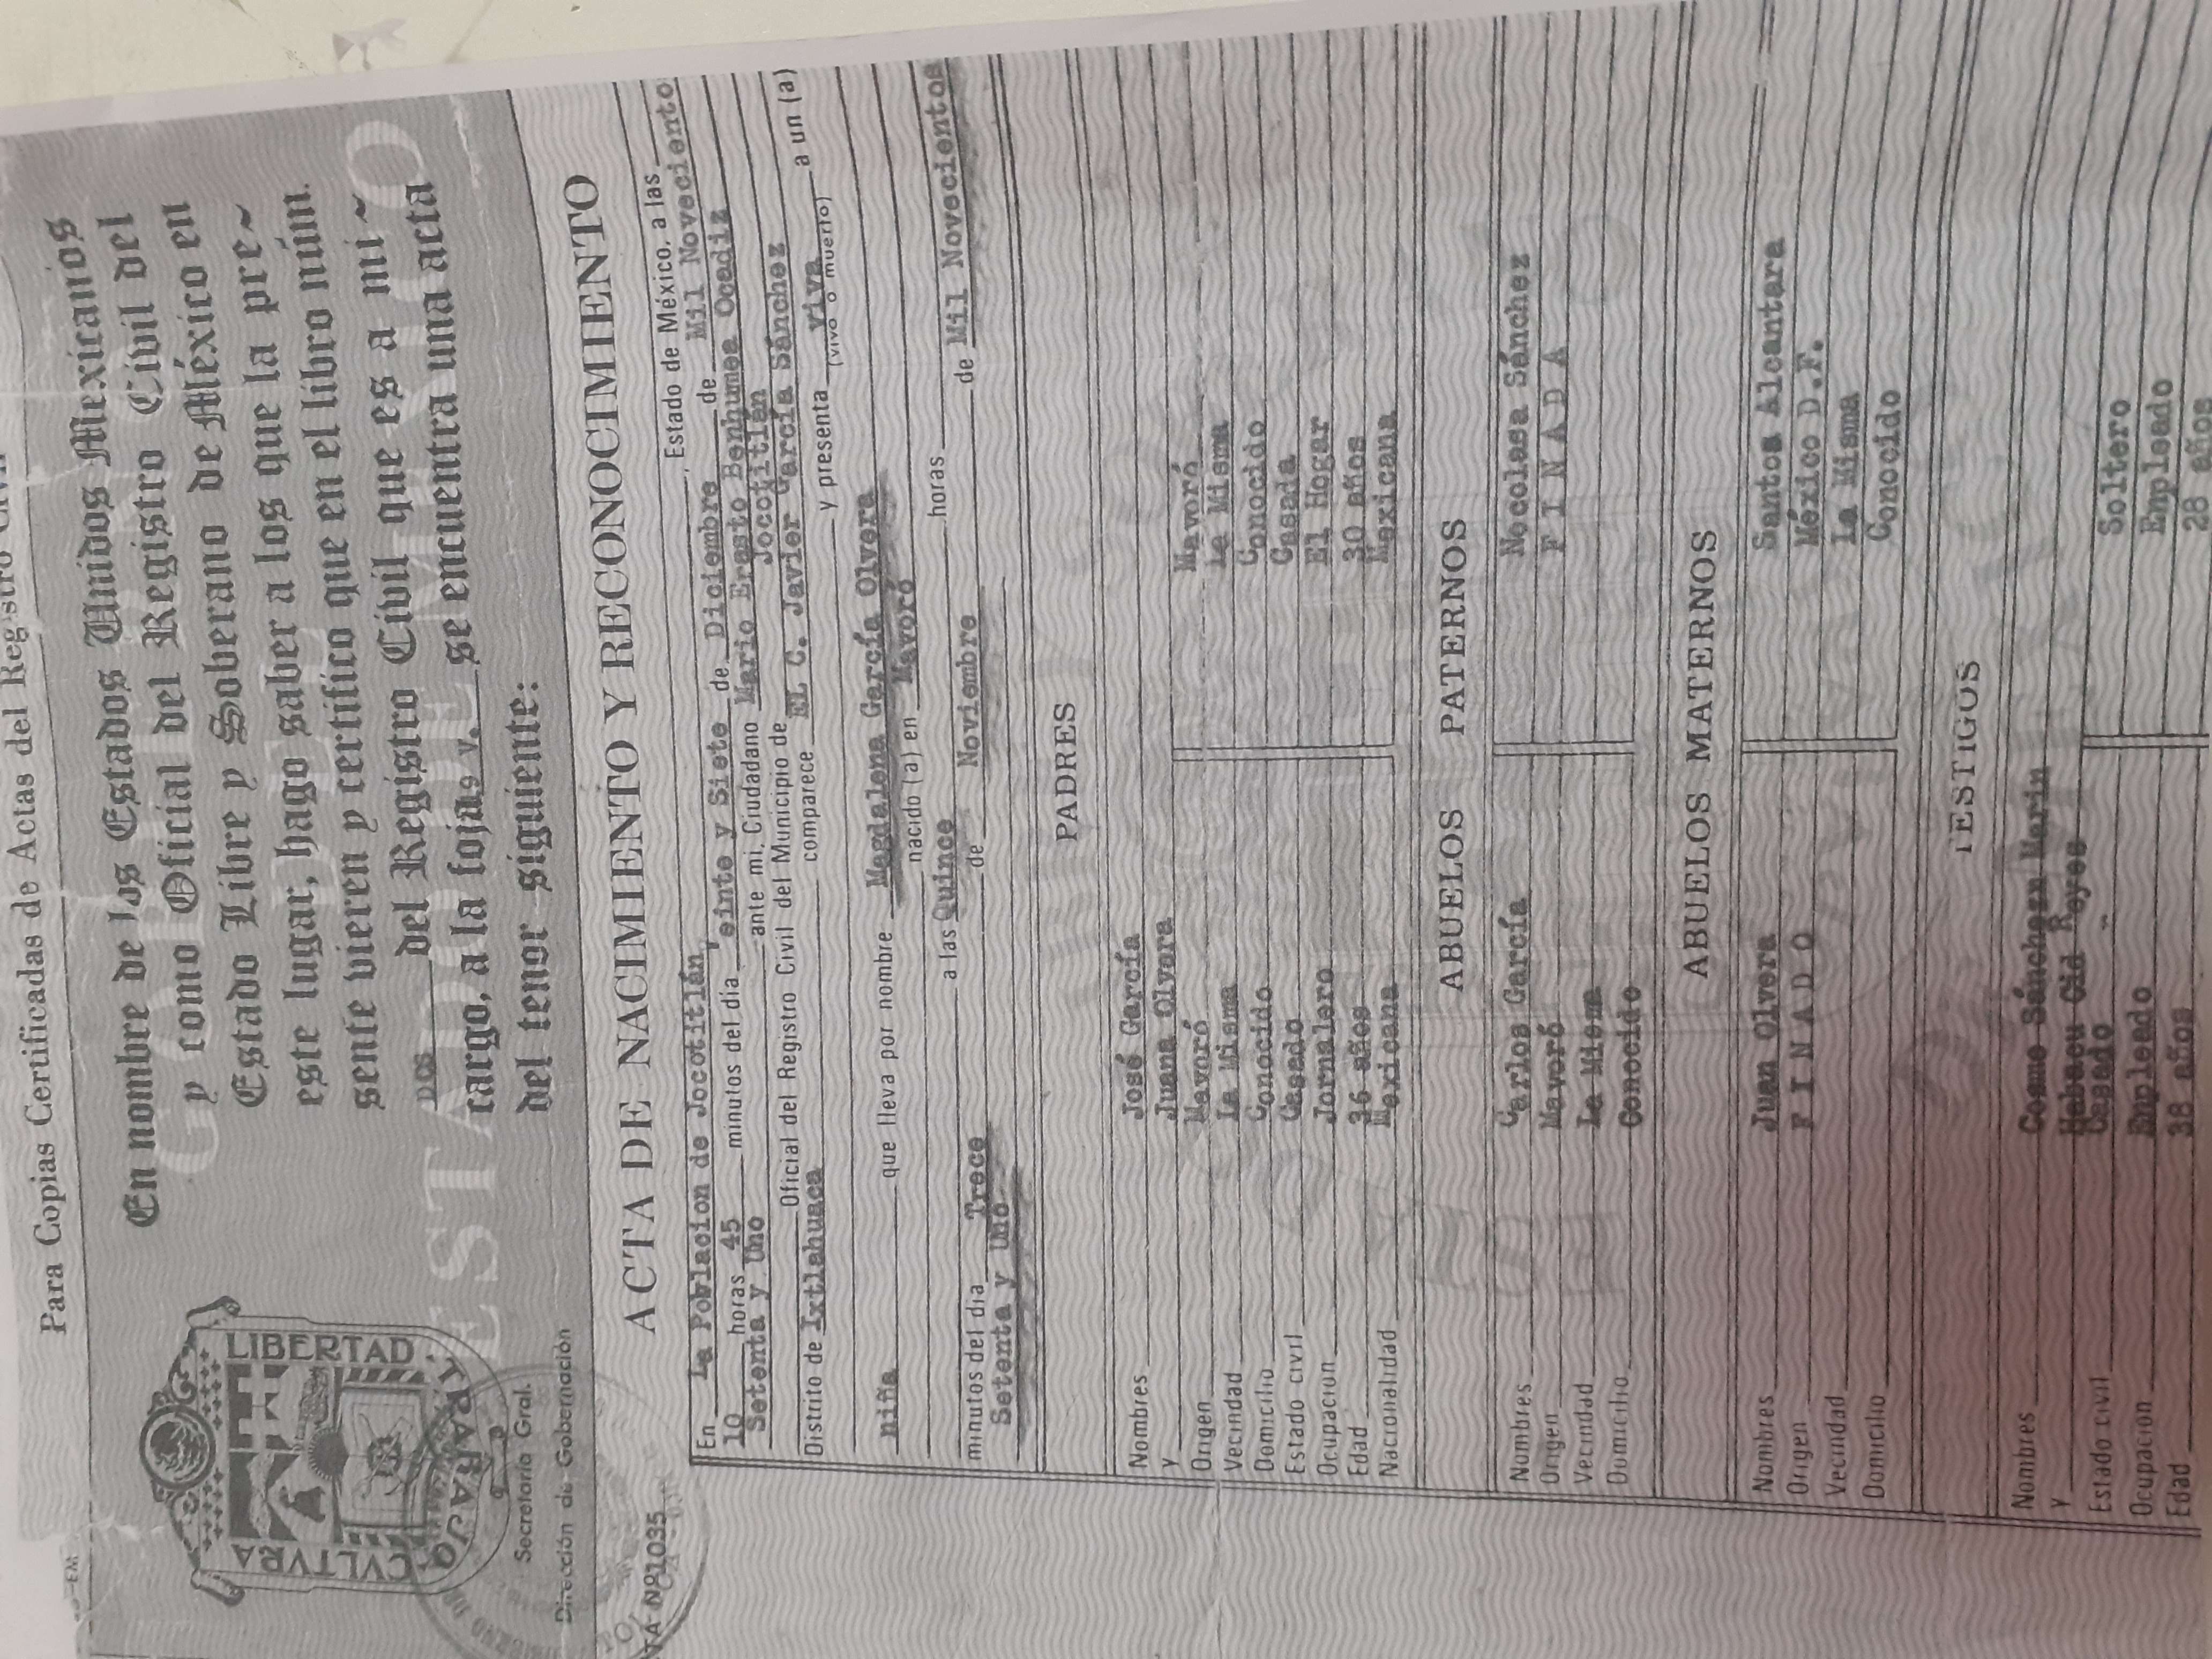 Para Copias Certificadas de Actas del Registro Civil
LIBERTAD
CVLTVRA
TRABAJO
Secretaría Gral.
Dirección de Gobernación
En nombre de los Estados Unidos Mexicanos
y como Oficial del Registro Civil del
Estado Libre y Soberano de México en
este lugar, hago saber a los que la pre~
sente vieren y certifico que en el libro núm.
DOS del Registro Civil que es a mi ~
cargo, a la foja 19 v. se encuentra una acta
del tenor siguiente:
ACTA DE NACIMIENTO Y RECONOCIMIENTO
TA Nº1035
En La Poblacion de Jocotitlán, Estado de México, a las
10 horas 45 minutos del día Veinte y Siete de Diciembre de Mil Noveciento
Setenta y Uno ante mi, Ciudadano Mario Erasto Benhumea Ocadiz
Oficial del Registro Civil del Municipio de Jocotitlán
Distrito de Ixtlahuaca comparece EL C. Javier García Sánchez a un (a)
y presenta viva
(vivo o muerto)
niña que lleva por nombre Magdalena García Olvera
nacido (a) en Mavoró
a las Quince horas
minutos del día Trece de Noviembre de Mil Novecientos
Setenta y Uno
PADRES
Nombres José García
y Juana Olvera
Origen Mavoró Mavoró
Vecindad La Misma La Misma
Domicilio Conocido Conocido
Estado civil Casado Casada
Ocupacion Jornalero El Hogar
Edad 36 años 30 años
Nacionalidad Mexicana Mexicana
ABUELOS PATERNOS
Nombres Carlos García Necolasa Sánchez
Origen Mavoró F I N A D A
Vecindad La Misma
Domicilio Conocido
ABUELOS MATERNOS
Nombres Juan Olvera Santos Alcantara
Origen F I N A D O México D.F.
Vecindad la Misma
Domicilio Conocido
TESTIGOS
Nombres Cosme Sánchez Marin
y Habacu Cid Reyes
Estado civil Casado Soltero
Ocupacion Empleado Empleado
Edad 38 años 28 años